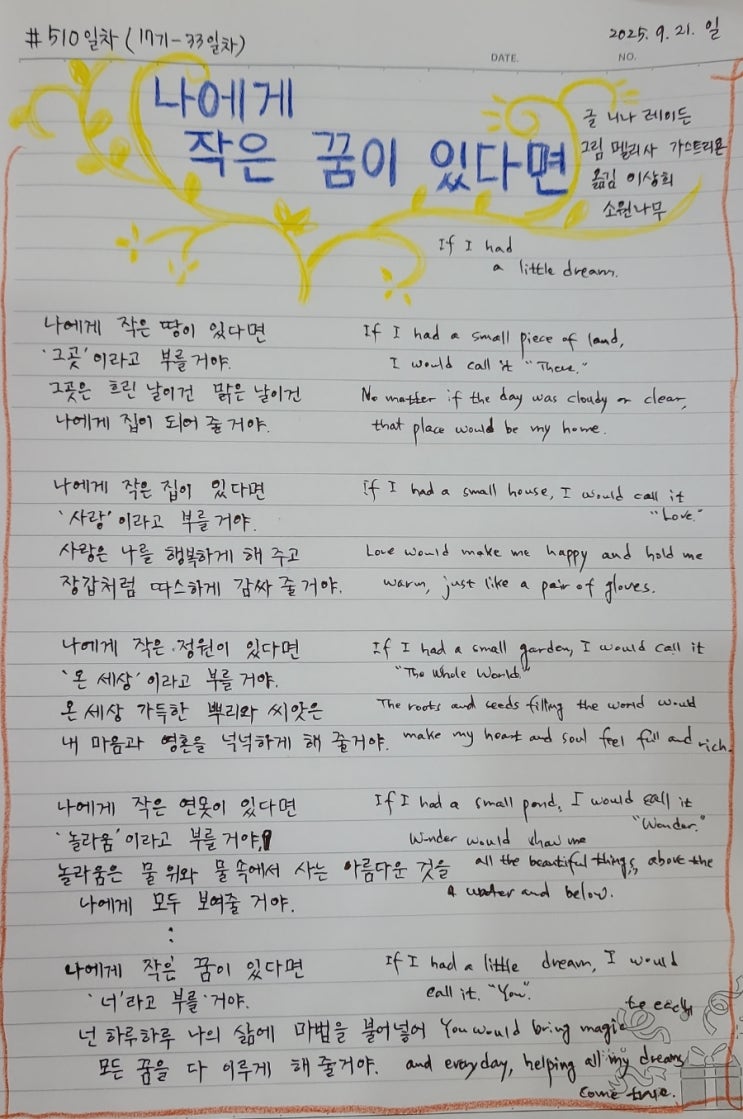 #510일차 (17기-33일차)
2025. 9. 21. 일
DATE.
NO.
나에게
작은 꿈이 있다면
글 니나 레이든
그림 멜리사 가스트리욘
옮김 이상희
소원나무
If I had
a little dream.
나에게 작은 땅이 있다면
'그곳'이라고 부를 거야.
그곳은 흐린 날이건 맑은 날이건
나에게 집이 되어 줄 거야.
If I had a small piece of land,
I would call it "There."
No matter if the day was cloudy or clear,
that place would be my home.
나에게 작은 집이 있다면
'사랑'이라고 부를 거야.
사랑은 나를 행복하게 해 주고
장갑처럼 따스하게 감싸 줄 거야.
If I had a small house, I would call it
"Love."
Love would make me happy and hold me
warm, just like a pair of gloves.
나에게 작은 정원이 있다면
'온 세상'이라고 부를 거야.
온 세상 가득한 뿌리와 씨앗은
내 마음과 영혼을 넉넉하게 해 줄거야.
If I had a small garden, I would call it
"The Whole World."
The roots and seeds filling the world would
make my heart and soul feel full and rich.
나에게 작은 연못이 있다면
'놀라움'이라고 부를 거야.
놀라움은 물 위와 물 속에서 사는 아름다운 것을
나에게 모두 보여줄 거야.
If I had a small pond, I would call it
"Wonder."
Wonder would show me
all the beautiful things, above the
water and below.
나에게 작은 꿈이 있다면
'너'라고 부를 거야.
넌 하루하루 나의 삶에 마법을 불어넣어
모든 꿈을 다 이루게 해 줄거야.
If I had a little dream, I would
call it. "You".
You would bring magic to each
and everyday, helping all my dreams
come true.